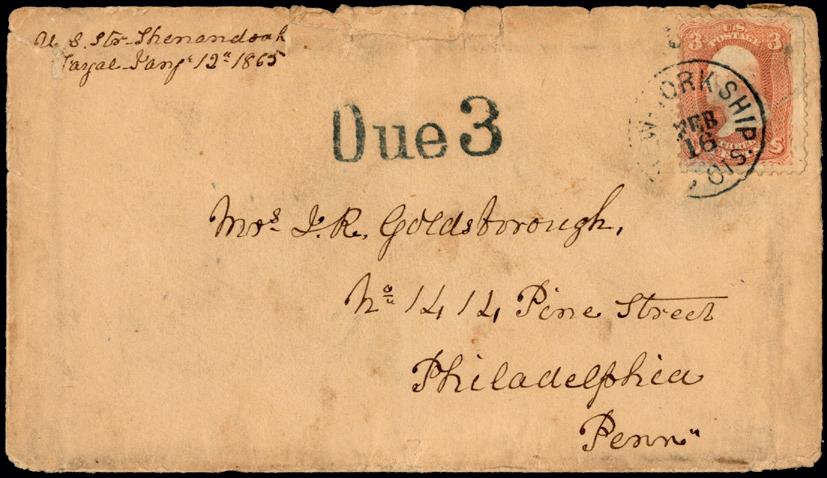 U. S. Str. Shenandoah
Fayal Jany 12" 1865
Due 3
U.S.
3 POSTAGE 3
W-YORK SHIP
FEB
16
Mrs. J. R. Goldsborough,
No 1414 Pine Street
Philadelphia
Penn"